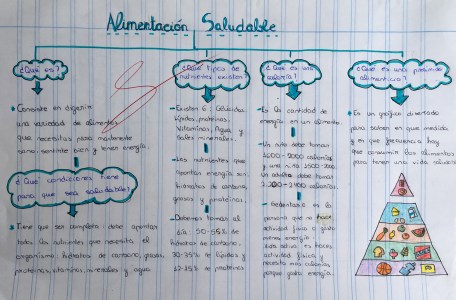 Alimentación Saludable
¿Qué es?
Consiste en digerir
una variedad de alimentos
que necesitas para mantenerte
sano, sentirte bien y tener energía.
¿Qué condiciones tiene
para que sea saludable?
Tiene que ser completa: debe aportar
todos los nutrientes que necesita el
organismo: hidratos de carbono, grasas,
proteínas, vitaminas, minerales y agua
¿Qué tipos de
nutrientes existen?
Existen 6: Glúcidos,
lípidos, proteínas,
Vitaminas, Agua y
Sales minerales.
Los nutrientes que
aportan energía son:
hidratos de carbono,
grasas y proteínas.
Debemos tomar al
día 50-55% de
hidratos de carbono,
30-35% de lípidos y
12-15% de proteínas
¿Qué es una
caloría?
Es la cantidad de
energía en un alimento.
Un niño debe tomar
1600-2000 calorías
y una niña 1500-
Un adulto debe tomar
2.200-2100 calorías
Sedentario es la
persona que no hace
actividad física o gasta
menos energía.
activa es
actividad física y
necesita más calorías
porque gasta energía.
¿Qué es una pirámide
alimenticia?
Es un gráfico diseñado
para saber en que medida
y en que frecuencia hay
que consumir los alimentos
para tener una vida saludable